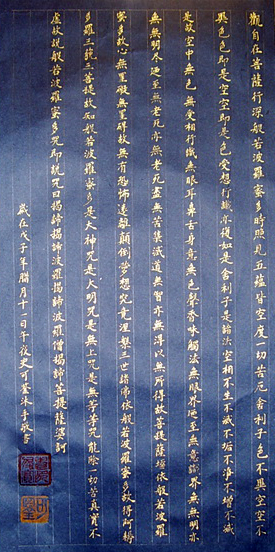 觀自在菩薩行深般若波羅蜜多時照見五蘊皆空度一切苦厄舍利子色不
異色色即是空空即是色受想行識亦復如是舍利子是諸法空相不生不滅不垢不淨不增不減
是故空中無色無受想行識無眼耳鼻舌身意無色聲香味觸法無眼界迺至無意識界無無明亦
無無明盡迺至無老死亦無老死盡無苦集滅道無智亦無得以無所得故菩提薩埵依般若波羅
蜜多故心無罣礙無罣礙故無有恐怖遠離顛倒夢想究竟涅槃三世諸佛依般若波羅蜜多故得阿耨
多羅三藐三菩提故知般若波羅蜜多是大神咒是大明咒是無上咒是無等等咒能除一切苦真實不
虛故說般若波羅蜜多咒即說咒曰揭諦揭諦波羅揭諦波羅僧揭諦菩提薩婆訶
歲在戊子年臘月十一日午夜史可沐手敬書